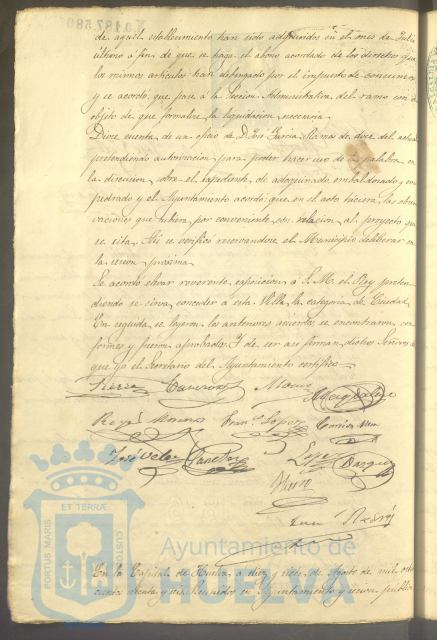 0.187.580
de aquel establecimiento han sido adquiridos en el mes de Julio
último á fin de que se pague el abono acordado de los direchos que
los mismos artículos han debengado por el impuesto de consumos
y se acordó que pase á la Sección Administrativa del ramo con
objeto de que formalice la liquidación necesaria.
Diose cuenta de un oficio de D. José García de doce del actual
pretendiendo autorización para poder hacer uso de la palabra en
la discusion sobre el expediente de adoquinado embaldosado y em
pedrado y el Ayuntamiento acordó que en el acto hiciera las obser
vaciones que tubiera por conveniente con relación al proyecto que
se cita. Asi se verificó reservandose el Municipio deliberar en
la sesion próxima.
Se acordó elevar reverente exposicion á S. M. el Rey preten
diendo se sirva conceder á esta Villa la categoria de Ciudad.
En seguida se leyeron los anteriores acuerdos se encontraron con
formes y fueron aprobados. Y de ser asi firman dichos Señores de
que yo el Secretario del Ayuntamiento certifico.
Moreno
Franco Lopez
José Velez
Lopez Vazquez
PORTUS MARIS ET TERRÆ CUSTODIA
Ayuntamiento de
HUELVA
En la Capital de Huelva á diez y siete de Agosto de mil ocho
cientos setenta y seis Reunidos en Ayuntamiento y sesion publica